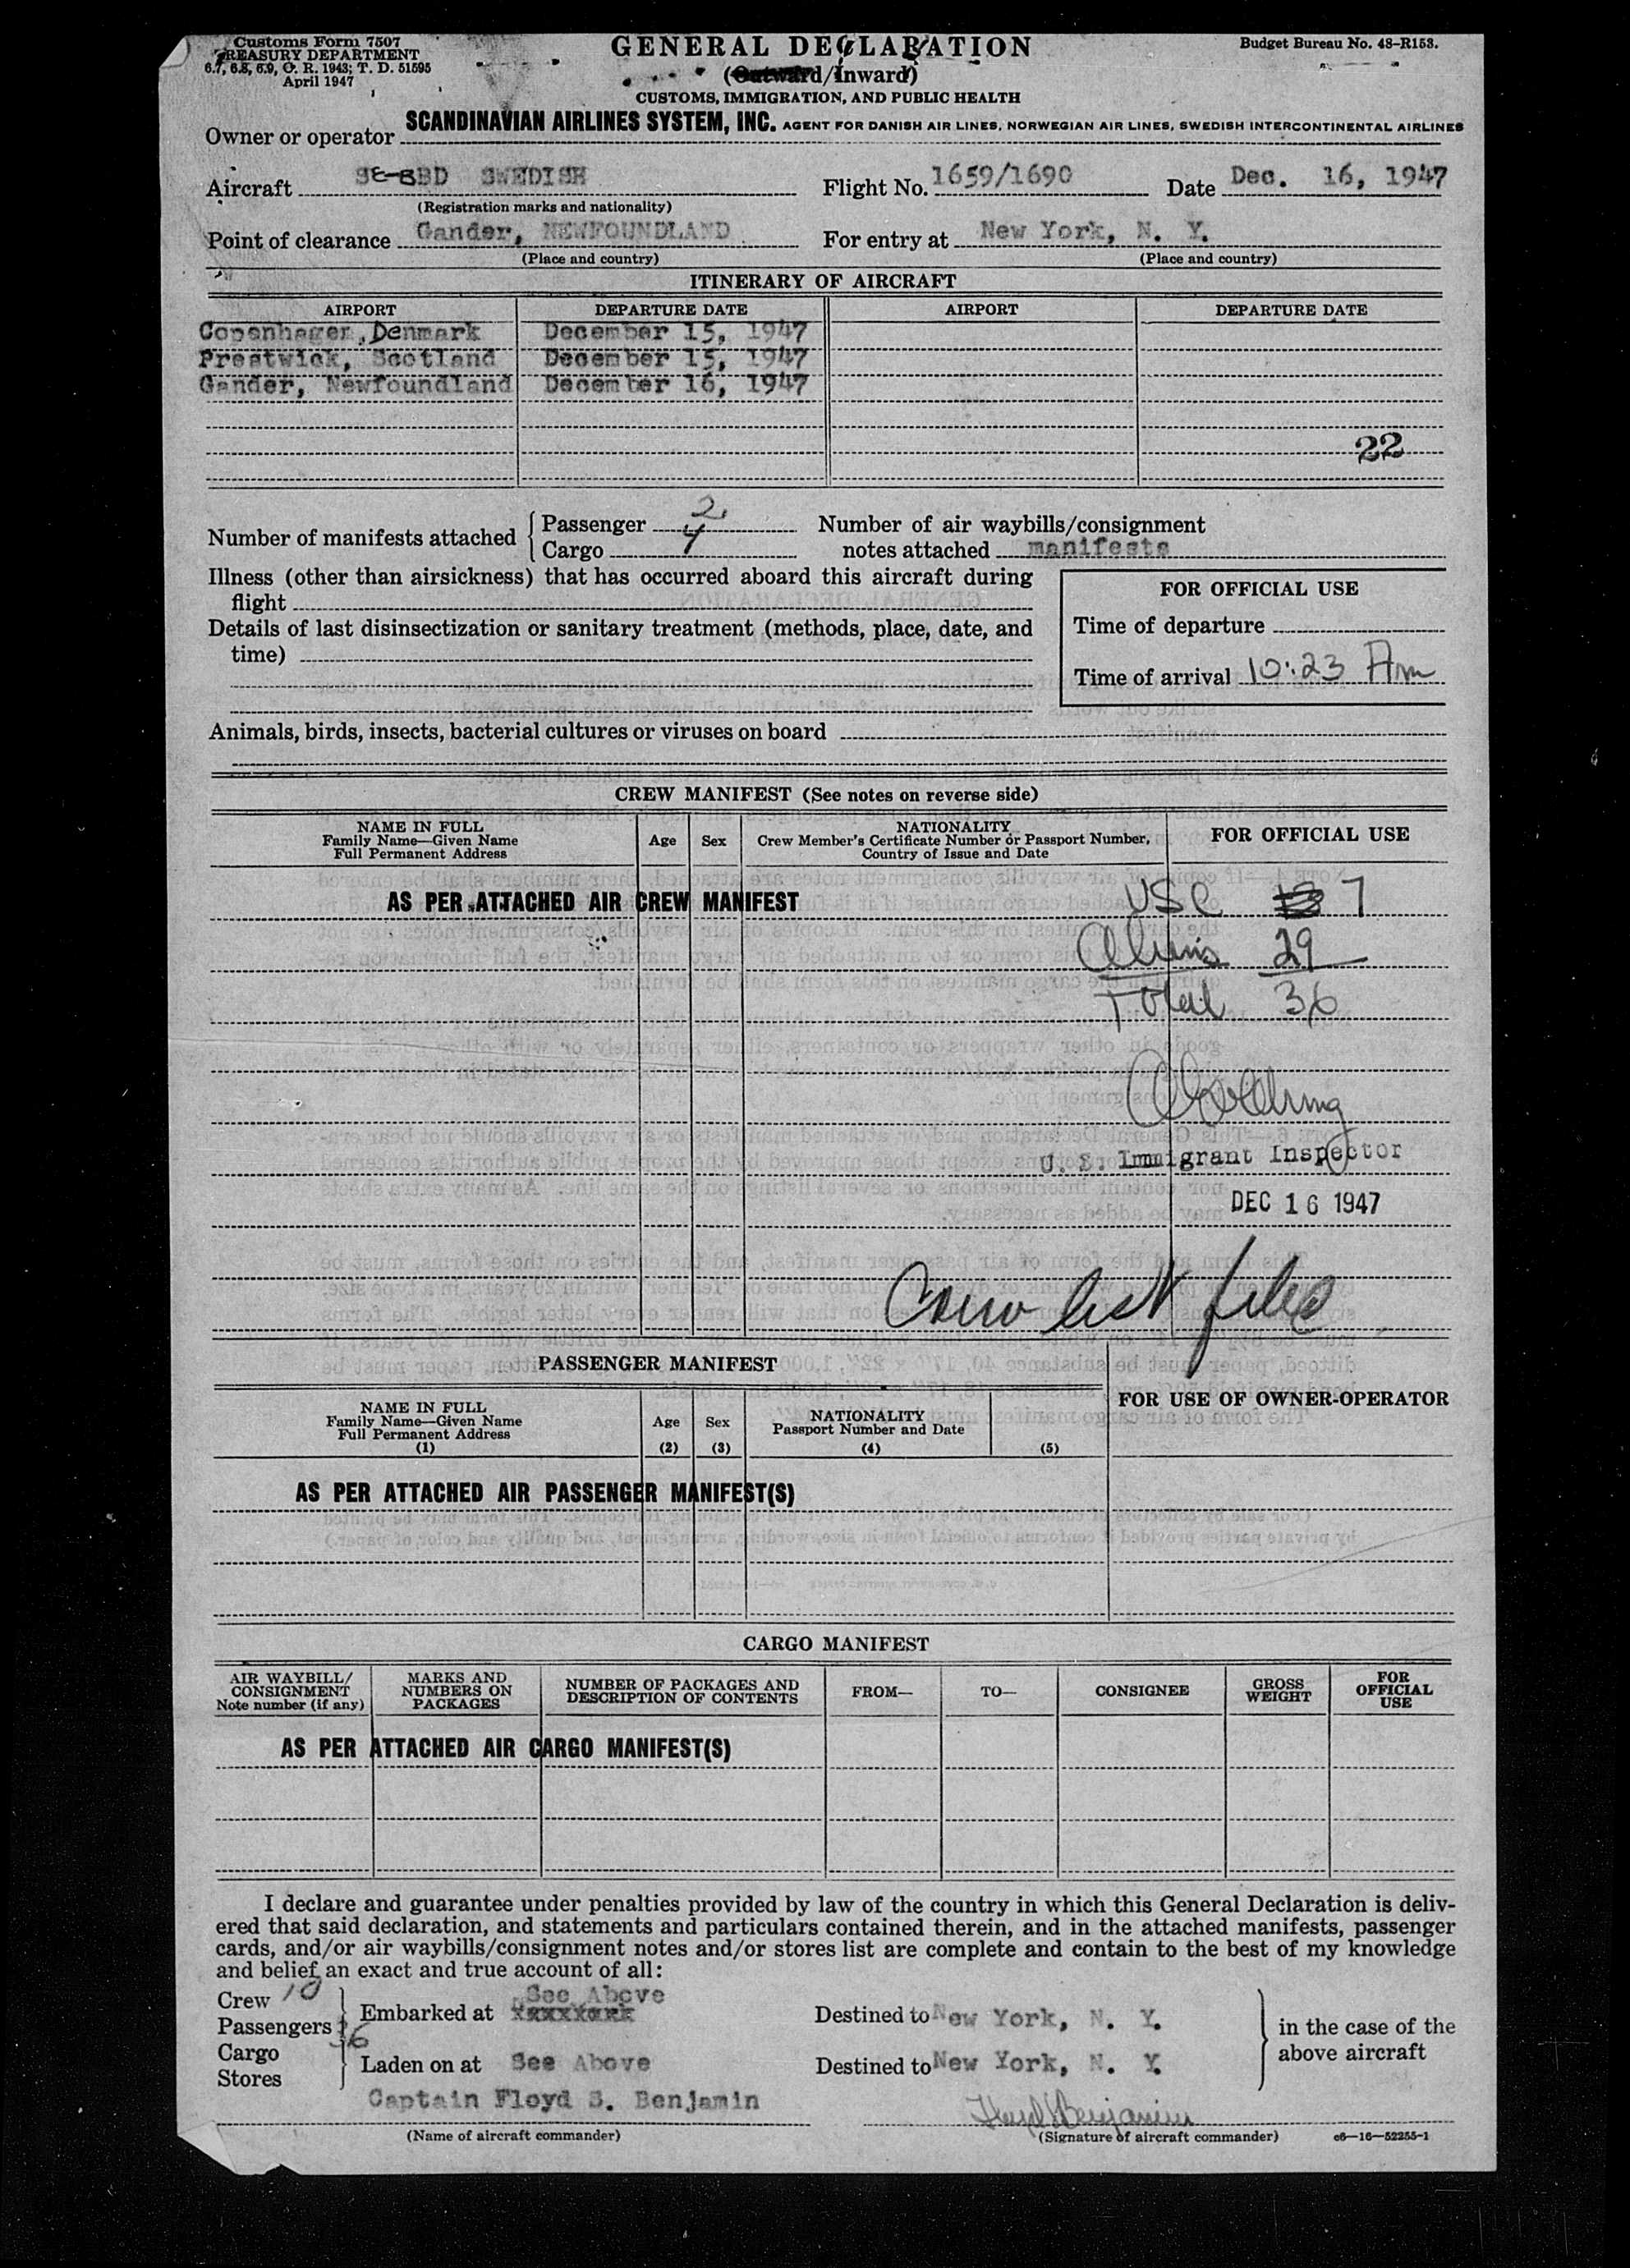 Customs Form 7507
TREASURY DEPARTMENT
6.7, 6.8, 6.9, C. R. 1943; T. D. 51595
April 1947
GENERAL DECLARATION
(Outward/Inward)
CUSTOMS, IMMIGRATION, AND PUBLIC HEALTH
Budget Bureau No. 48-R153.
Owner or operator SCANDINAVIAN AIRLINES SYSTEM, INC. AGENT FOR DANISH AIR LINES, NORWEGIAN AIR LINES, SWEDISH INTERCONTINENTAL AIRLINES
Aircraft SE-BBD SWEDISH Flight No. 1659/1690 Date Dec. 16, 1947
(Registration marks and nationality)
Point of clearance Gander, NEWFOUNDLAND For entry at New York, N. Y.
(Place and country) (Place and country)
ITINERARY OF AIRCRAFT
AIRPORT DEPARTURE DATE AIRPORT DEPARTURE DATE
Copenhagen, Denmark December 15, 1947
Prestwick, Scotland December 15, 1947
Gander, Newfoundland December 16, 1947
22
Number of manifests attached { Passenger 2
Cargo 4
Number of air waybills/consignment
notes attached manifests
Illness (other than airsickness) that has occurred aboard this aircraft during
flight
Details of last disinsectization or sanitary treatment (methods, place, date, and
time)
FOR OFFICIAL USE
Time of departure
Time of arrival 10:23 Am
Animals, birds, insects, bacterial cultures or viruses on board
CREW MANIFEST (See notes on reverse side)
NAME IN FULL
Family Name—Given Name
Full Permanent Address
Age
Sex
NATIONALITY
Crew Member's Certificate Number or Passport Number,
Country of Issue and Date
FOR OFFICIAL USE
AS PER ATTACHED AIR CREW MANIFEST
USC 7
Aliens 29
Total 36
U. S. Immigrant Inspector
DEC 16 1947
Crew list filed
PASSENGER MANIFEST
FOR USE OF OWNER-OPERATOR
NAME IN FULL
Family Name—Given Name
Full Permanent Address
(1)
Age
(2)
Sex
(3)
NATIONALITY
Passport Number and Date
(4)
(5)
AS PER ATTACHED AIR PASSENGER MANIFEST(S)
CARGO MANIFEST
AIR WAYBILL/
CONSIGNMENT
Note number (if any)
MARKS AND
NUMBERS ON
PACKAGES
NUMBER OF PACKAGES AND
DESCRIPTION OF CONTENTS
FROM—
TO—
CONSIGNEE
GROSS
WEIGHT
FOR
OFFICIAL
USE
AS PER ATTACHED AIR CARGO MANIFEST(S)
I declare and guarantee under penalties provided by law of the country in which this General Declaration is deliv-
ered that said declaration, and statements and particulars contained therein, and in the attached manifests, passenger
cards, and/or air waybills/consignment notes and/or stores list are complete and contain to the best of my knowledge
and belief an exact and true account of all:
Crew 10
Passengers 36
Embarked at See Above
Destined to New York, N. Y.
Cargo
Stores
Laden on at See Above
Destined to New York, N. Y.
in the case of the
above aircraft
Captain Floyd S. Benjamin
Floyd S Benjamin
(Name of aircraft commander) (Signature of aircraft commander) c6—16—52255-1